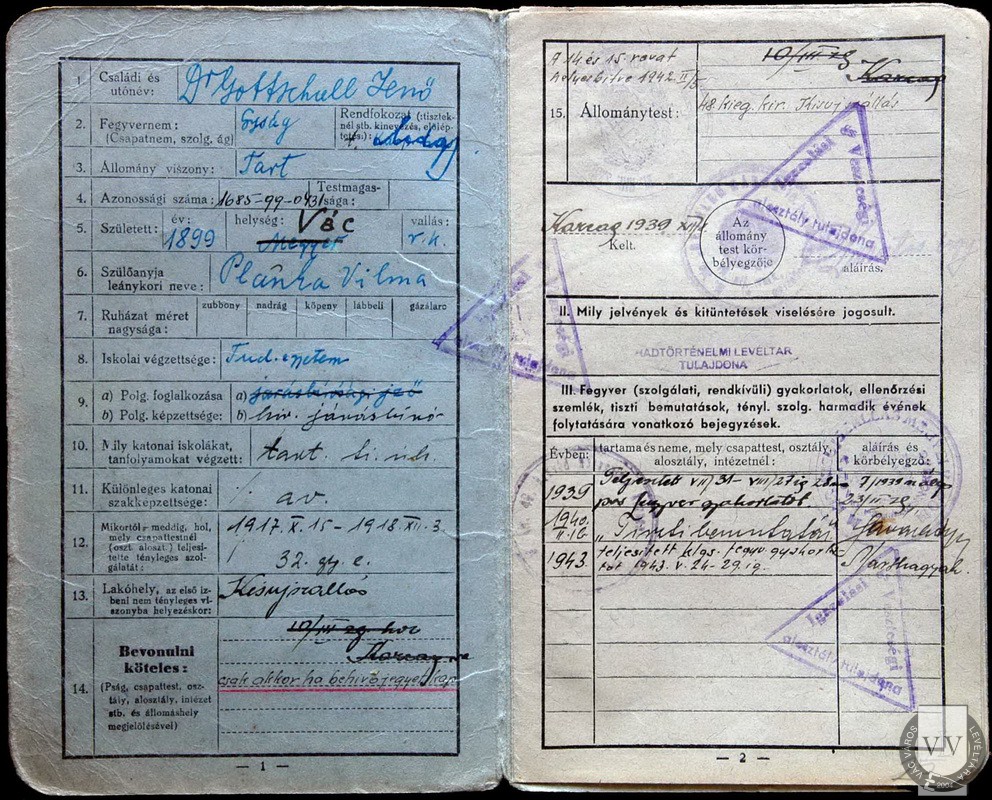 1. Családi és utónév: Dr Gottschall Jenő
2. Fegyvernem: (Csapatnem, szolg. ág)
Rendfokozat (tisztek-
nél stb. kinevezés, előlép-
tetés):
3. Állomány viszony: Tart
4. Azonossági száma: 1685-99-0431 Testmagas-
sága:
5. Született: év: 1899 helység: Megyer Vác vallás: r. k.
6. Szülőanyja
leánykori neve: Planka Vilma
7. Ruházat méret
nagysága: zubbony nadrág köpeny lábbeli gázálarc
8. Iskolai végzettsége: Tud. egyetem
9. a) Polg. foglalkozása a) járásbírósági jző
b) Polg. képzettsége: b) kir. járásbíró
10. Mily katonai iskolákat,
tanfolyamokat végzett: tart. ti. isk.
11. Különleges katonai
szakképzettsége: av.
12. Mikortól - meddig, hol,
mely csapattestnél
(oszt. aloszt.) teljesi-
tette tényleges szol-
gálatát:
1917. X. 15 – 1918. XII. 3.
32. gy. e.
13. Lakóhely, az első iz-
beni nem tényleges vi-
szonyba helyezéskor: Kisujszállás
14. Bevonulni
köteles:
(Pság, csapattest, osz-
tály, alosztály, intézet
stb. és állomáshely
megjelölésével)
Karcag
csak akkor ha behivójegyet kap
— 1 —
A 14 és 15. rovat
helyesbitve 1942. II/5
Karcag
15. Állománytest: 48. kieg. kir. Kisujszállás
Karcag 1939 XII/
Kelt.
Az
állomány
test kör-
bélyegzője
aláírás.
Igazolási
és Vezetőségi
alosztály tulajdona
II. Mily jelvények és kitüntetések viselésére jogosult.
HADTÖRTÉNELMI LEVÉLTÁR
TULAJDONA
III. Fegyver (szolgálati, rendkívüli) gyakorlatok, ellenőrzési
szemlék, tiszti bemutatások, tényl. szolg. harmadik évének
folytatására vonatkozó bejegyzések.
Évben: tartama és neme, mely csapattest, osztály,
alosztály, intézetnél:
aláírás és
körbélyegző:
1939 Teljesített VII/31 – VIII/27 ig 28
pos fegyvergyakorlatot.
1940.
II. 16. „Tiszti bemutatás"
1943. teljesített fegyv. gyakorla
tot 1943. V. 24-29. ig.
Igazolási
Vezetőségi
alosztály tulajdona
— 2 —
VÁC VÁROS LEVÉLTÁRA
VV